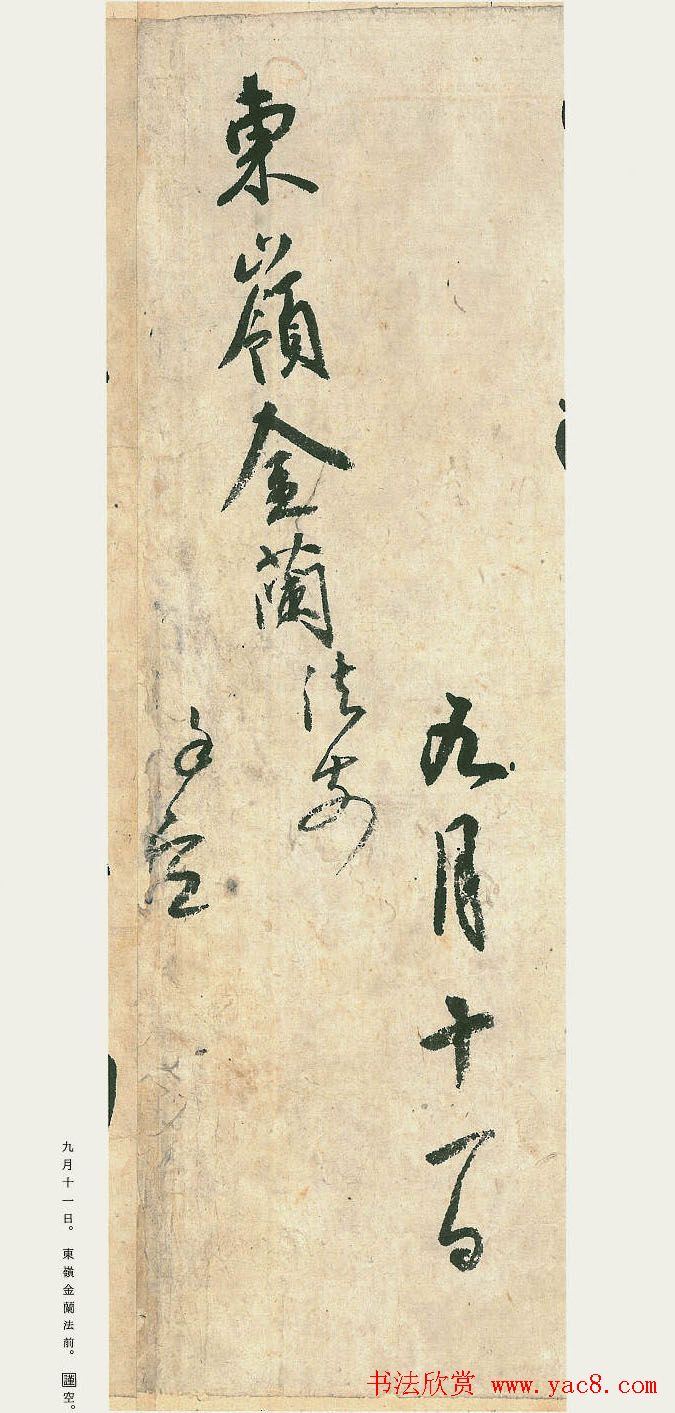 九月十一日
東嶺金蘭法前
謹空
九月十一日。東嶺金蘭法前。謹空。
书法欣赏 www.yac8.com